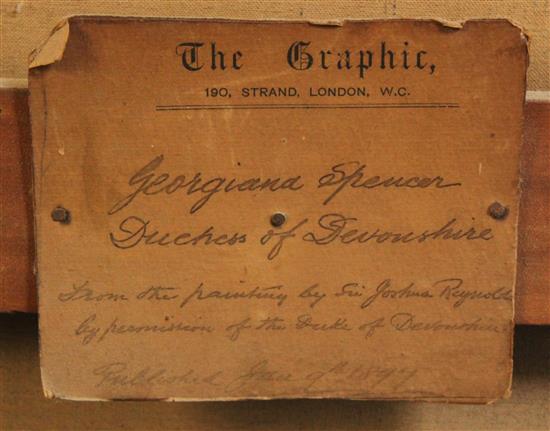 The Graphic,
190, STRAND, LONDON, W.C.
Georgiana Spencer
Duchess of Devonshire
From the painting by Sir Joshua Reynolds
by permission of the Duke of Devonshire
Published